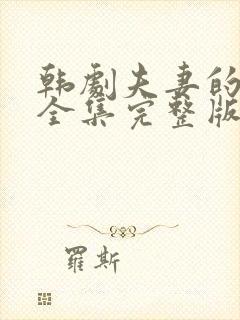 韩劇夫妻的
全集完整版
羅斯